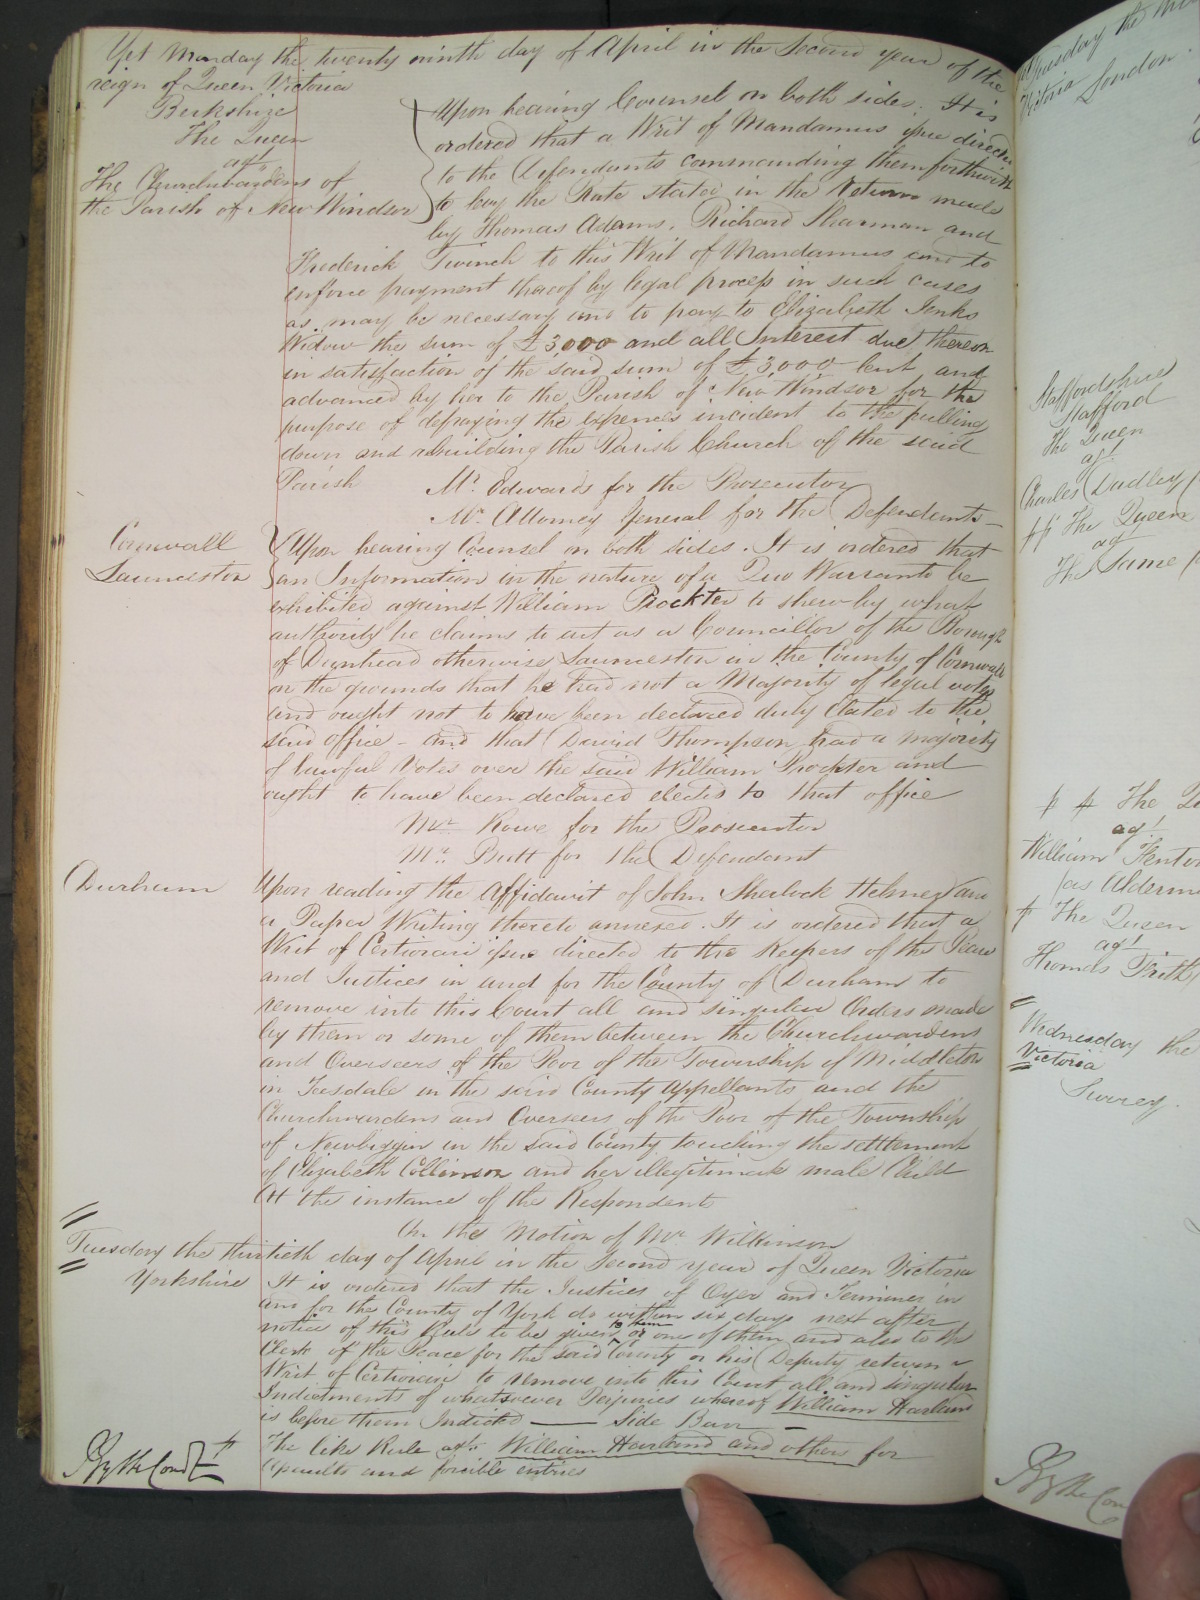 Yet Monday the twenty ninth day of April in the Second year of the
reign of Queen Victoria
Berkshire
The Queen
agt
The Churchwardens of
the Parish of New Windsor
Upon hearing Counsel on both sides. It is
ordered that a Writ of Mandamus issue directed
to the Defendants commanding them forthwith
to levy the Rate stated in the Return made
by Thomas Adams, Richard Sharman and
Frederick Twinch to this Writ of Mandamus and to
enforce payment thereof by legal process in such cases
as may be necessary and to pay to Elizabeth Jenks
Widow the sum of £3,000 and all Interest due thereon
in satisfaction of the said sum of £3,000 lent and
advanced by her to the Parish of New Windsor for the
purpose of defraying the expences incident to the pulling
down and rebuilding the Parish Church of the said
Parish
Mr. Edwards for the Prosecutor
Mr. Attorney General for the Defendants
Cornwall
Launceston
Upon hearing Counsel on both sides. It is ordered that
an Information in the nature of a Quo Warranto be
exhibited against William Prockter to shew by what
authority he claims to act as a Councillor of the Borough
of Dunhead otherwise Launceston in the County of Cornwall
on the grounds that he had not a Majority of legal votes
and ought not to have been declared duly Elected to the
said office - and that David Thompson had a majority
of lawful Votes over the said William Prockter and
ought to have been declared elected to that office
Mr. Rowe for the Prosecutor
Mr. Butt for the Defendant
Durham
Upon reading the Affidavit of John Sherlock and
a Paper Writing thereto annexed. It is ordered that a
Writ of Certiorari issue directed to the Keepers of the Peace
and Justices in and for the County of Durham to
remove into this Court all and singular Orders made
by them or some of them between the Churchwardens
and Overseers of the Poor of the Township of Middleton
in Teesdale in the said County Appellants and the
Churchwardens and Overseers of the Poor of the Township
of Newbiggin in the said County touching the settlement
of Elizabeth Collinson and her illegitimate male Child
At the instance of the Respondents
On the Motion of Mr. Wilkinson
Tuesday the thirtieth day of April in the Second year of Queen Victoria
Yorkshire
It is ordered that the Justices of Oyer and Terminer in
and for the County of York do within six days next after
notice of this Rule to be given to them or one of them and also to the
Clerk of the Peace for the said County or his Deputy return a
Writ of Certiorari to remove into this Court all and singular
Indictments of whatsoever Perjuries whereof William
is before them Indicted — Side Bar —
The like Rule agt. William and others for
Assaults and forcible entries
By the Court
Tuesday the
Victoria
London
Staffordshire
Stafford
The Queen
agt
Charles Dudley
The Queen
agt
The Same
The
agt
William
(as
The Queen
agt
Thomas Frith
Wednesday the
Victoria
Surrey
By the